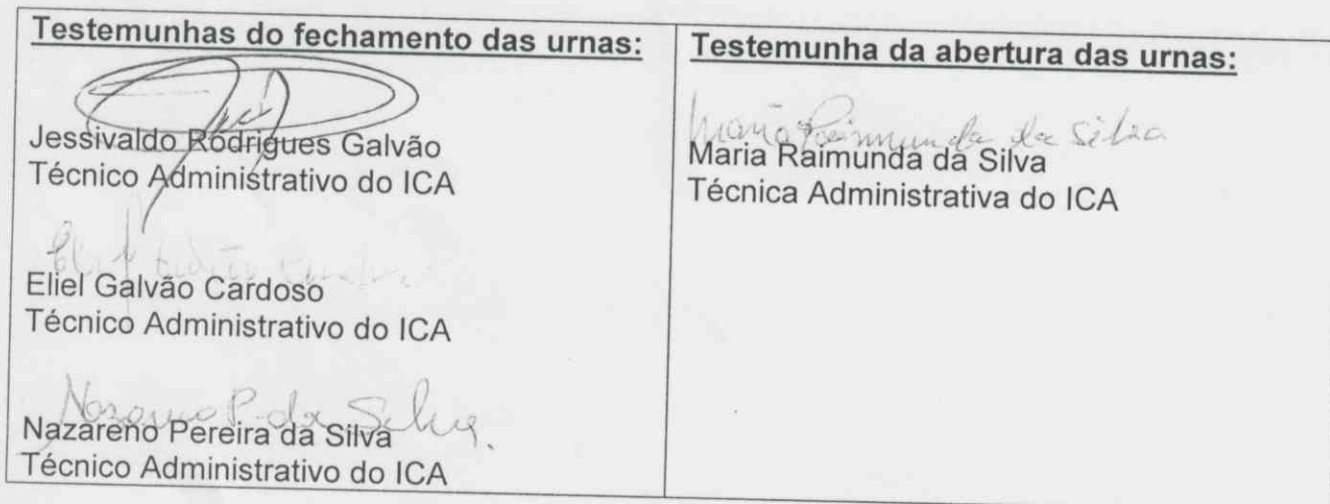 Testemunhas do fechamento das urnas:
Jessivaldo Rodrigues Galvão
Técnico Administrativo do ICA
Eliel Galvão Cardoso
Técnico Administrativo do ICA
Nazareno P. da Silva.
Nazareno Pereira da Silva
Técnico Administrativo do ICA
Testemunha da abertura das urnas:
Maria Raimunda da Silva
Maria Raimunda da Silva
Técnica Administrativa do ICA